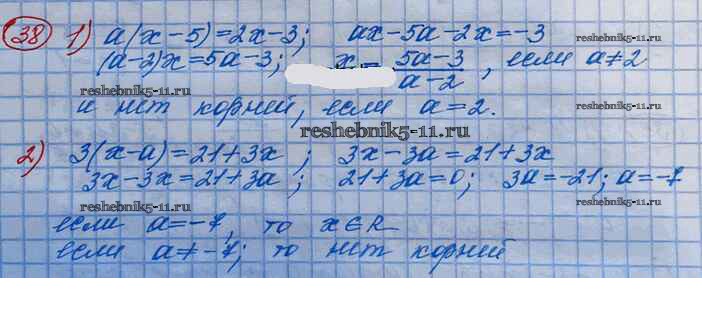 38 1) a(x-5)=2x-3; ax-5a-2x=-3
(a-2)x=5a-3; x= 5a-3/a-2, если a≠2
reshebnik5-11.ru reshebnik5-11.ru
и нет корней, если a=2. reshebnik5-11.ru
reshebnik5-11.ru
2) 3(x-a)=21+3x; 3x-3a=21+3x
3x-3x=21+3a; 21+3a=0; 3a=-21; a=-7
reshebnik5-11.ru reshebnik5-11.ru
если a=-7, то x∈R
если a≠-7; то нет корней